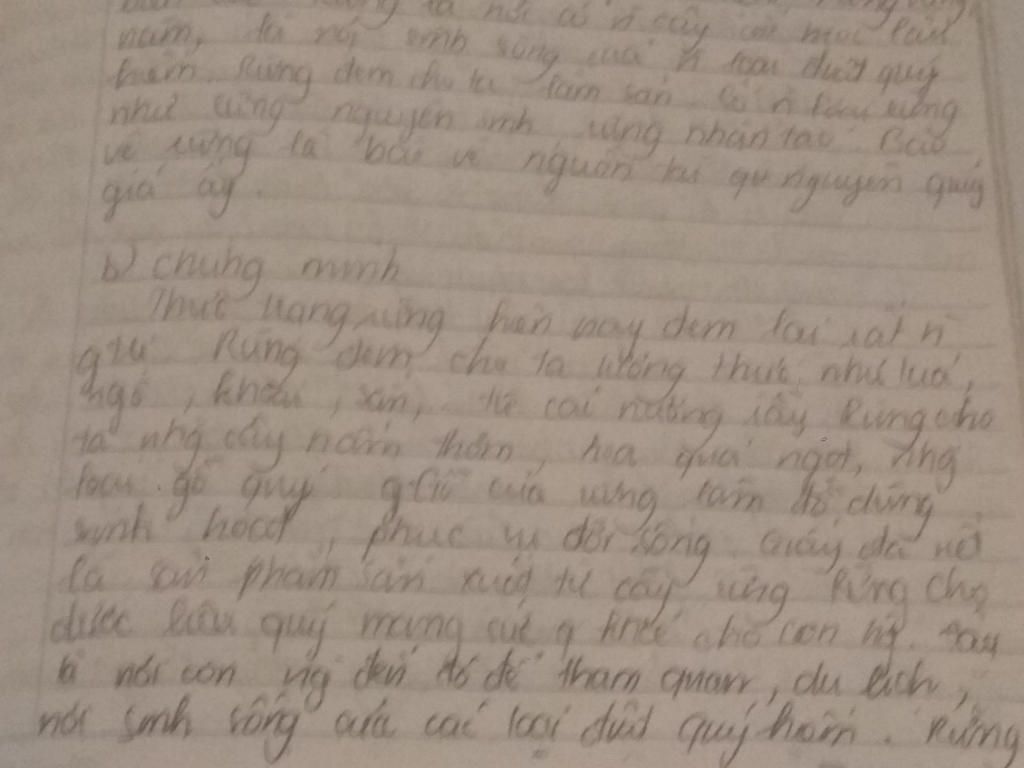 ta nơi có n cây cối
năm, là nơi sinh sống của n loại đvật quý
hiếm. Rừng đem cho ta lâm sản. Có n
như rừng nguyên sinh rừng nhân tạo. Bảo
vệ rừng là bảo vệ nguồn tài nguyên quý
giá ấy.
b) chứng minh
Thực trạng rừng hiện nay đem lại rất n
gtrị Rừng đem cho ta lương thực như lúa,
ngô, khoai, sắn, từ cái nương rẫy Rừng cho
ta nhg cây nấm thơm, hoa quả ngọt, nhg
loại gỗ quý gtrị của rừng làm đồ dùng
sinh hoạt, phục vụ đời sống. Giấy
là sản phẩm sản xuất từ cây rừng Rừng cho
dược liệu quý mang sức khoẻ cho con ng. Đây
là nơi con ng đến đó để tham quan, du lịch,
nơi sinh sống của các loại đvật quý hiếm. Rừng